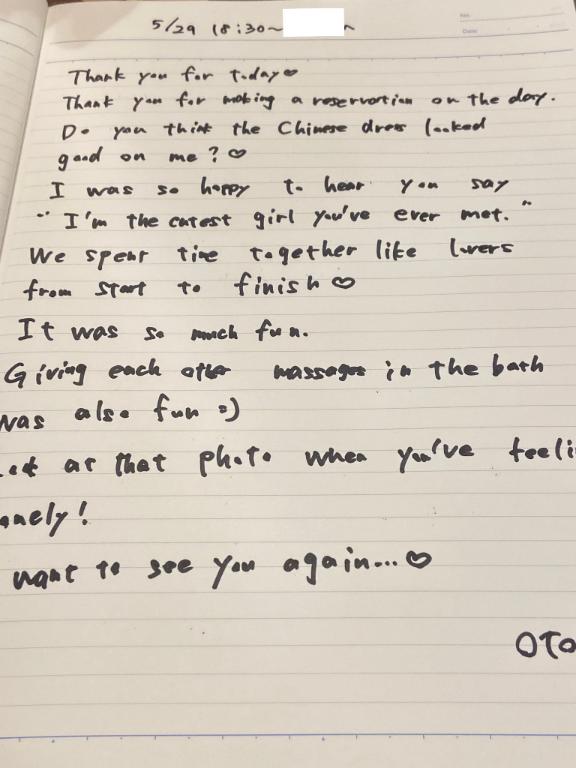 5/29 18:30~ ~
Thank you for today♡
Thank you for making a reservation on the day.
Do you think the Chinese dress looked
good on me? ♡
I was so happy to hear you say
"I'm the cutest girl you've ever met."
We spent time together like lovers
from start to finish ♡
It was so much fun.
Giving each other massages in the bath
was also fun :)
at that photo when you've feeli
want to see you again...♡